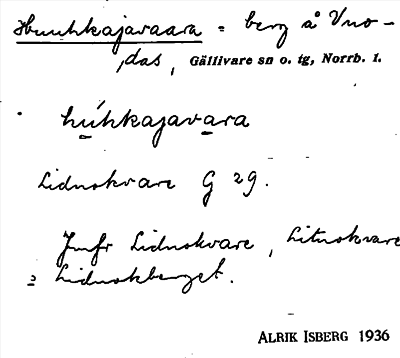 Huuhkajavaara = berg å Vuo-
das, Gällivare sn o. tg, Norrb. l.
húhkajavara
Lidnokvare G 29.
Jmfr Lidnokvare, Litnokvare
= Lidnokberget.
ALRIK ISBERG 1936